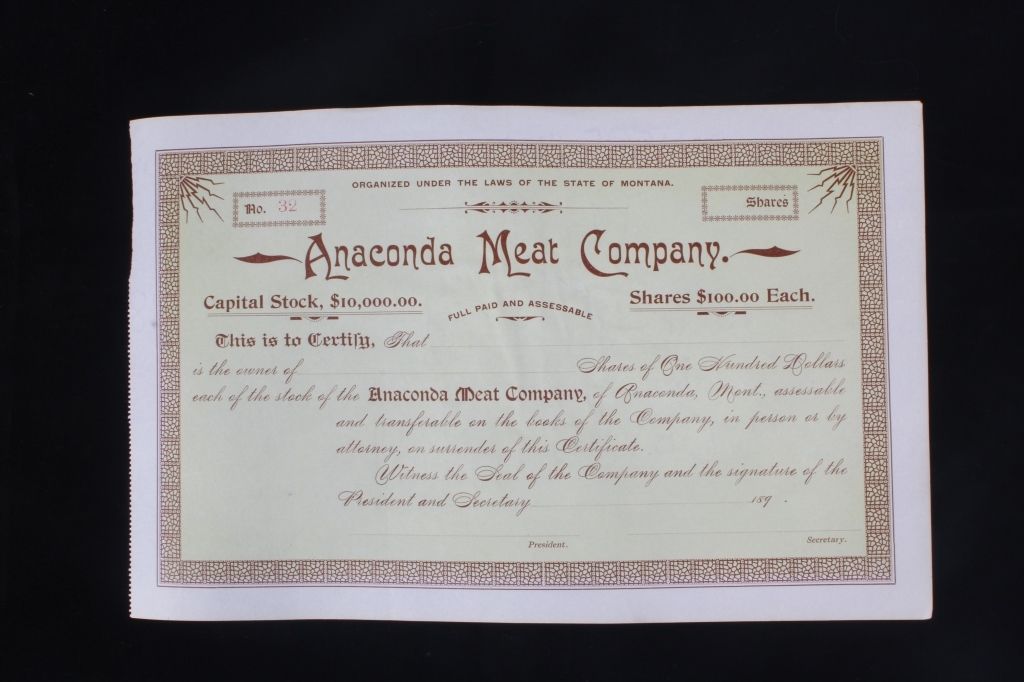 ORGANIZED UNDER THE LAWS OF THE STATE OF MONTANA.
No. 32
Shares
Anaconda Meat Company.
Capital Stock, $10,000.00.
FULL PAID AND ASSESSABLE
Shares $100.00 Each.
This is to Certify, That
is the owner of Shares of One Hundred Dollars
each of the stock of the Anaconda Meat Company, of Anaconda, Mont., assessable
and transferable on the books of the Company, in person or by
attorney, on surrender of this Certificate.
Witness the Seal of the Company and the signature of the
President and Secretary 189 .
President.
Secretary.